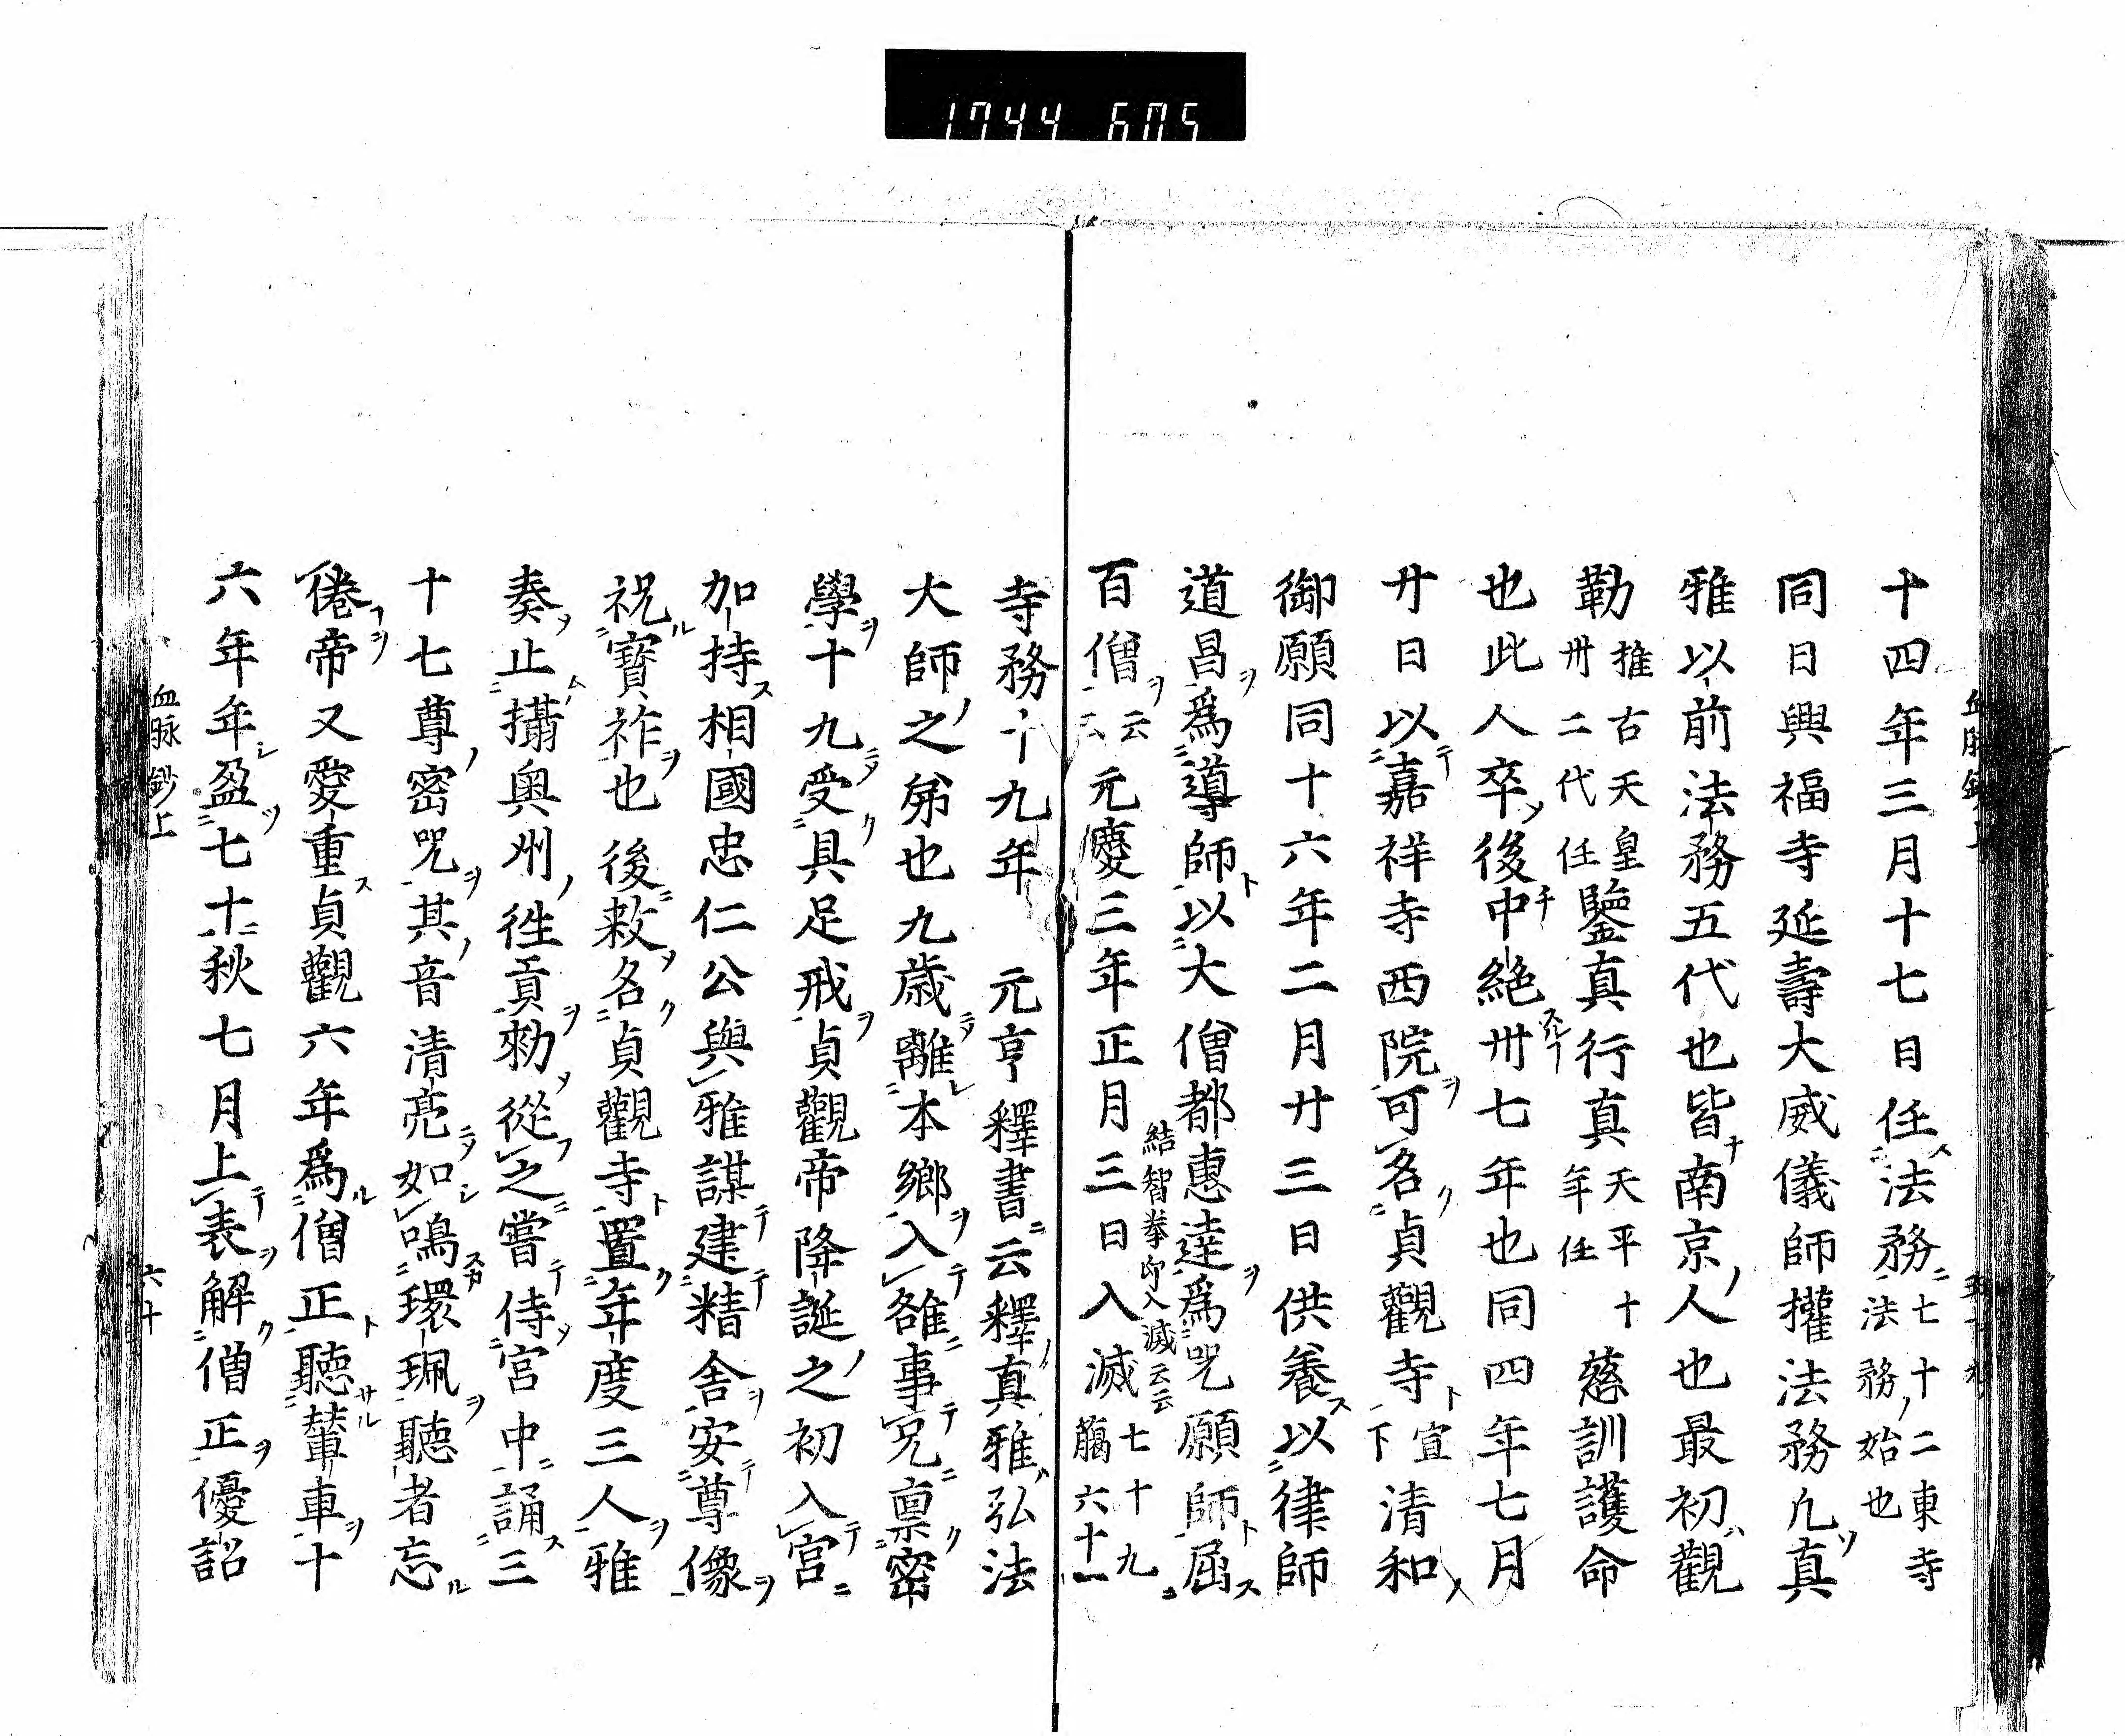 1744 605
十四年三月十七日任法務七十二東寺法務始也
同日興福寺延壽大威儀師權法務凢真
雅以前法務五代也皆南京人也最初觀
勒推古天皇卅二代任鑒真行真天平十年任慈訓護命
也此人卒後中絶卅七年也同四年七月
廿日以嘉祥寺西院可名貞觀寺宣下清和
御願同十六年二月廿三日供養以律師
道昌爲導師以大僧都惠達爲咒願師屈
百僧云云元慶三年正月三日入滅七十九臈六十一結智拳印入滅云云
寺務十九年 元亨釋書云釋真雅弘法
大師之弟也九歳離本鄉入雒事兄禀密
學十九受具足戒貞觀帝降誕之初入宮
加持相國忠仁公與雅謀建精舍安尊像
祝寶祚也後敕名貞觀寺置年度三人雅
奏止攝奥州徃貢勑從之嘗侍宮中誦三
十七尊密咒其音清亮如鳴環珮聽者忘
倦帝又愛重貞觀六年爲僧正聽輦車十
六年年盈七十秋七月上表解僧正優詔
血脉鈔上 六十